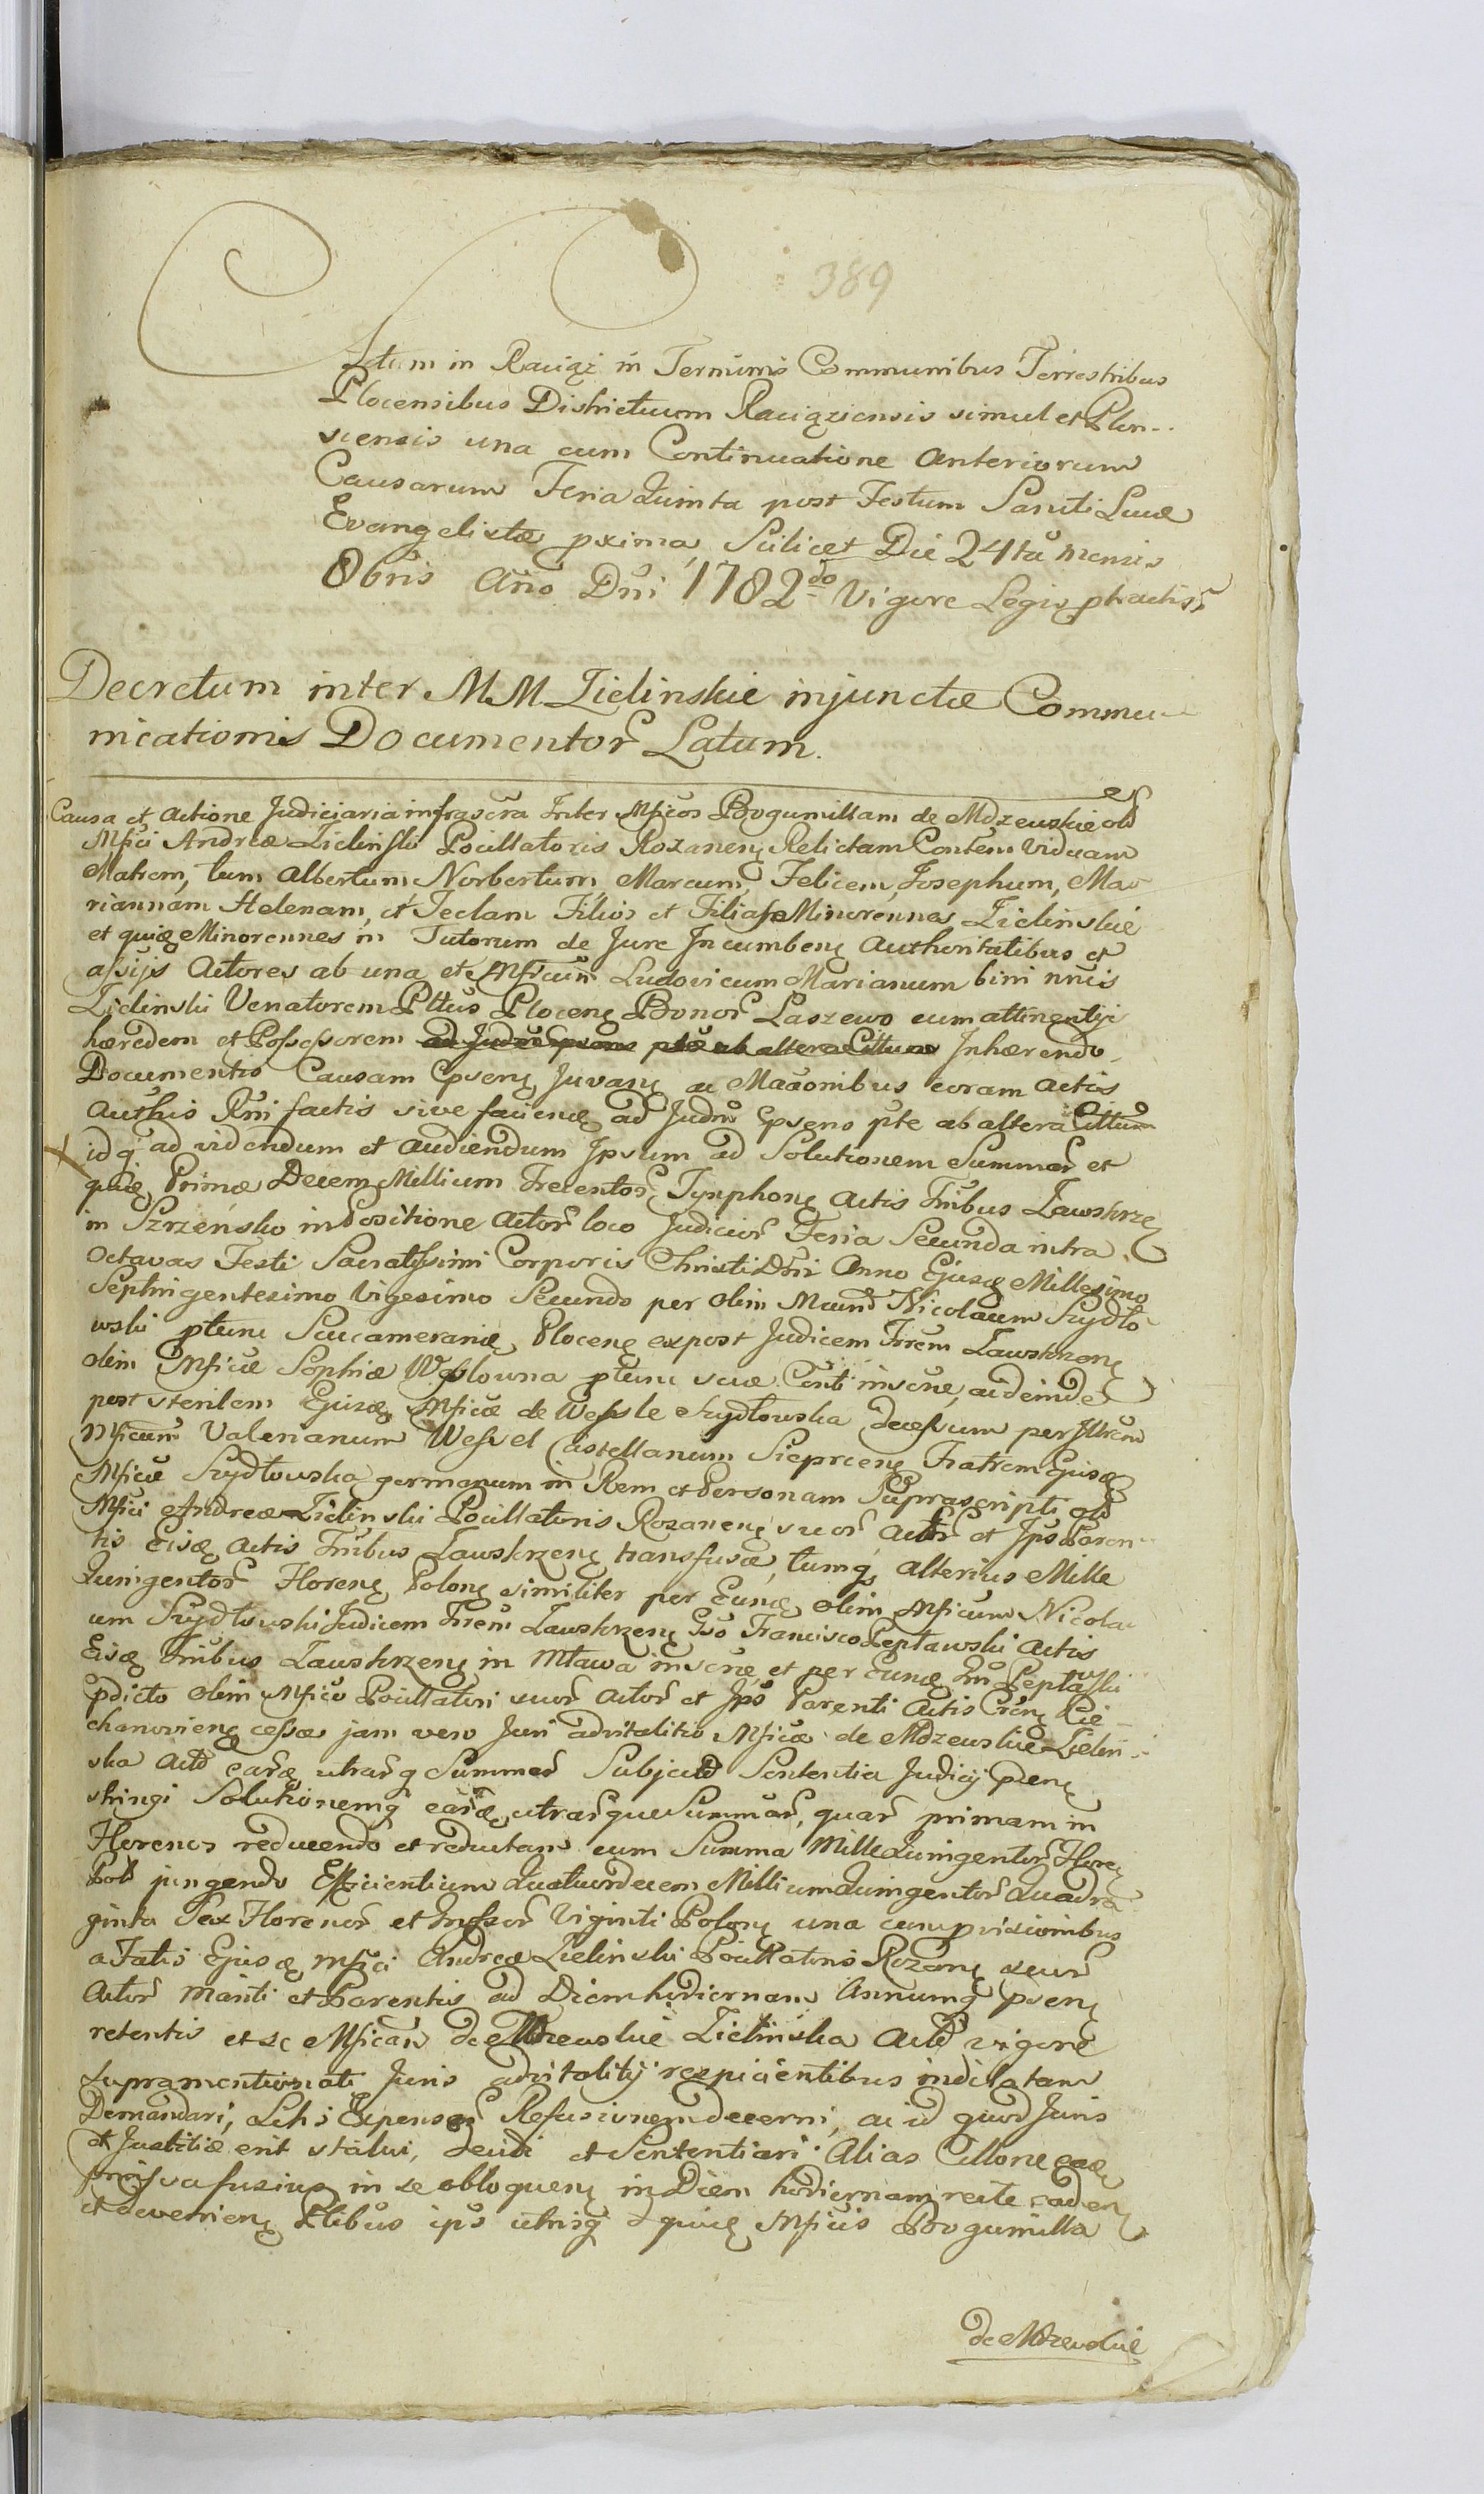 389
Actum in Raciąż in Terminis Communibus Terrestribus
Plocensibus Districtuum Raciążiensis simul et Plon-
scensis una cum Continuatione Anteriorum
Causarum Feria Quinta post Festum Sancti Lucæ
Evangelistæ pxima, Scilicet Die 24ta mensis
8bris Año Dñi 1782do Vigore Legis
Decretum inter M.M. Zielinskie injunctæ Commu-
nicationis Documentor Latum.
Causa et Actione Judiciaria infrascra Inter Mficos Bogumillam de Mdzewskie olim
Mfici Andreæ Zielinski Pocillatoris Rozanen Relictam Viduam
Matrem, tum Albertum Norbertum, Marcum, Felicem, Josephum, Ma-
riannam Helenam, et Teclam Filios et Filias Minorennes Zielinskie
et quiæ Minorennes in Tutorum de Jure Incumben Authoritatibus et
assijs Actores ab una et Mficum Ludovicum Marianum bini nnis
Zielinski Venatorem Plttus Plocen Bonor Laszewo cum attinentijs
hæredem et Possessorem ad Judm ab altera Cittum Inhærendo
Documentis Causam Juvan ac coram Actis
Authis Rni factis sive facien ad Judm pte ab altera Cittum
idq ad videndum et audiendum Ipsum ad Solutionem Summar et
quiæ Primæ Decem Millium Trecentor Tynphon Actis Tribus Zawskrzen
in Szrzeńsko in Positione Actor loco Judicior Feria Secunda intra
Octavas Festi Sacratissimi Corporis Christi Dñi Anno Ejusq Millesimo
Septingentesimo Vigesimo Secundo per olim Mcum Nicolaum Szydło-
wski ptunc Succamerariæ Plocen expost Judicem Trem Zawskrzen
olim Mficæ Sophiæ Wesslowna ptunc suæ ac deinde
post sterilem Ejusq Mficæ de Wessle Szydłowska decessum per Illrem
Mficum Valerianum Wessel Castellanum Sieprcen Fratrem Ejusq
Mficæ Szydłowska germanum in Rem et Personam Suprascripti olim
Mfici Andreæ Zielinski Pocillatoris Rozanen suor Actor et Ips Paren-
tis Eisq Actis Tribus Zawskrzen transfusæ, tumq alterius Mille
Quingentor Floren Polon similiter per Eunq olim Mficum Nicola-
um Szydłowski Judicem Trem Zawskrzen Gso Francisco Peptawski Actis
Eisq Tribus Zawskrzen in Mława et per Eunq Peptawski
pdicto olim Mfico Pocillatori suor Actor et Ips Parenti Actis Cie-
chanovien cessæ jam vero Juri advitalitio Mficæ de Mdzewskie Zielin-
ska earq utrarq Summar Subject Sententia Judicij pden
stringi Solutionemq earq utrarque Summar, quar primam in
Florenos reducendo et reductam cum Summa Mille Quingentor Floren
Pol jungendo Efficientium Quatuordecem Millium Quingentor Quadra-
ginta Sex Florenor et Grossor Viginti Polon una cum pvisionibus
a Fatis Ejusq Mfici Andreæ Zielinski Pocillatoris Rozan suor
Actor Mariti et Parentis ad Diem hodiernam Annumq psen
retentis et se Mficam de Mdzewskie Zielinska vigore
supramentionati Juris advitalitij respicientibus indilatam
Demandari, Litis Expensar Refusionem decerni, ac id quod Juris
et Justitiæ erit statui, decidi et Sententiari. Alias Cittone eaq
fusius in se obloquen in Diem hodiernam recte caden
et devenien Ptibus ips utrisq quiæ Mficis Bogumilla
de Mdzewskie